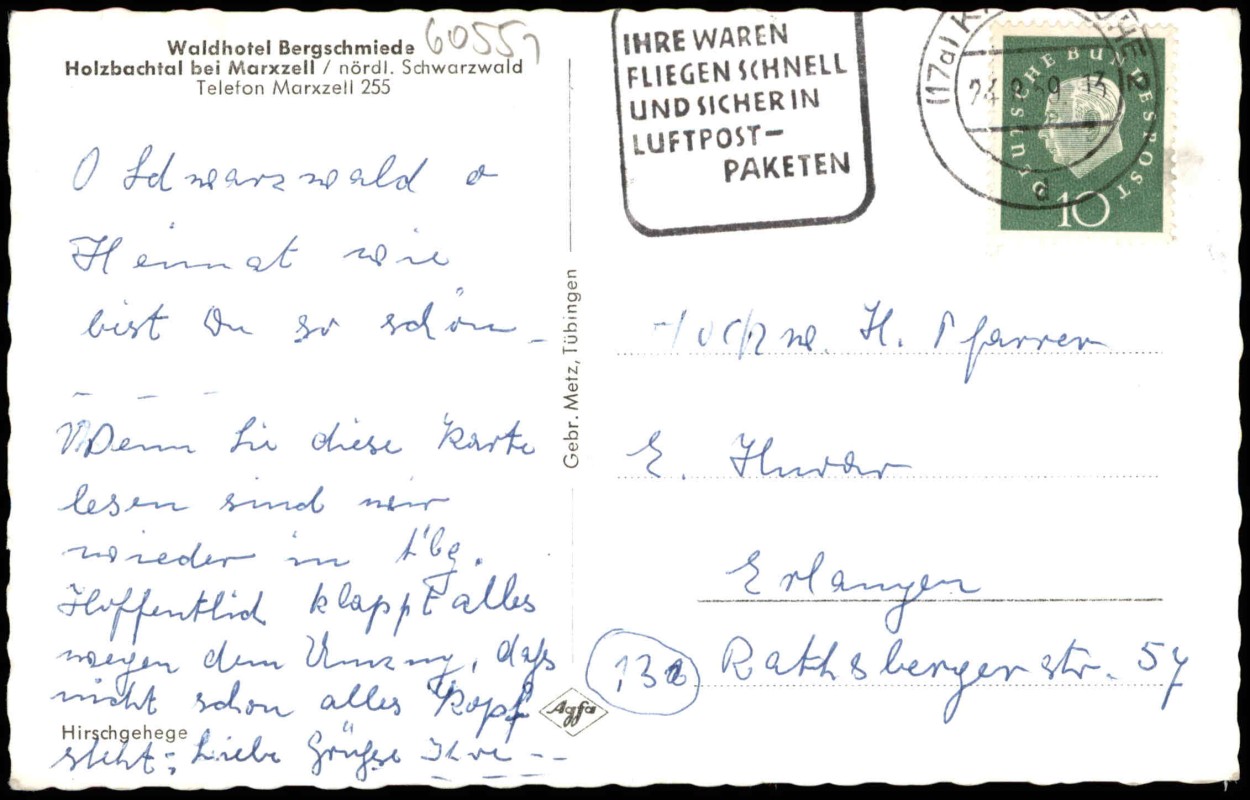 Waldhotel Bergschmiede
Holzbachtal bei Marxzell / nördl. Schwarzwald
Telefon Marxzell 255
60551
O Schwarzwald o
Heimat wie
bist Du so schön -
- - -
Wenn Sie diese Karte
lesen sind wir
wieder in
Hoffentlich klappt alles
wegen dem Umzug, daß
nicht schon alles Kopf
steht; Liebe Grüße Ihre - -
Hirschgehege
Gebr. Metz, Tübingen
Agfa
IHRE WAREN
FLIEGEN SCHNELL
UND SICHER IN
LUFTPOST-
PAKETEN
(17a)
24. 59. 13
d
DEUTSCHE BUNDESPOST
10
Hochw. H. Pfarrer
E.
Erlangen
Rathsbergerstr. 57